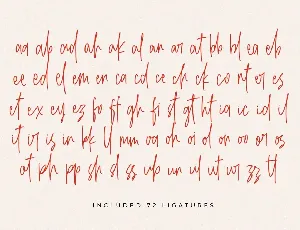 aa ab ad ah ak al an ar at bb bl ea eb
ee ed el em en ca cd ce ch ck co nt er es
et ex ey ez fo ft gh fi st gt ht ia ic id il
it ir is in kk ll mm oa oh ol on oo or os
ot ph pp sh sl ss ub un ul ut wr zz tl
INCLUDED 72 LIGATURES